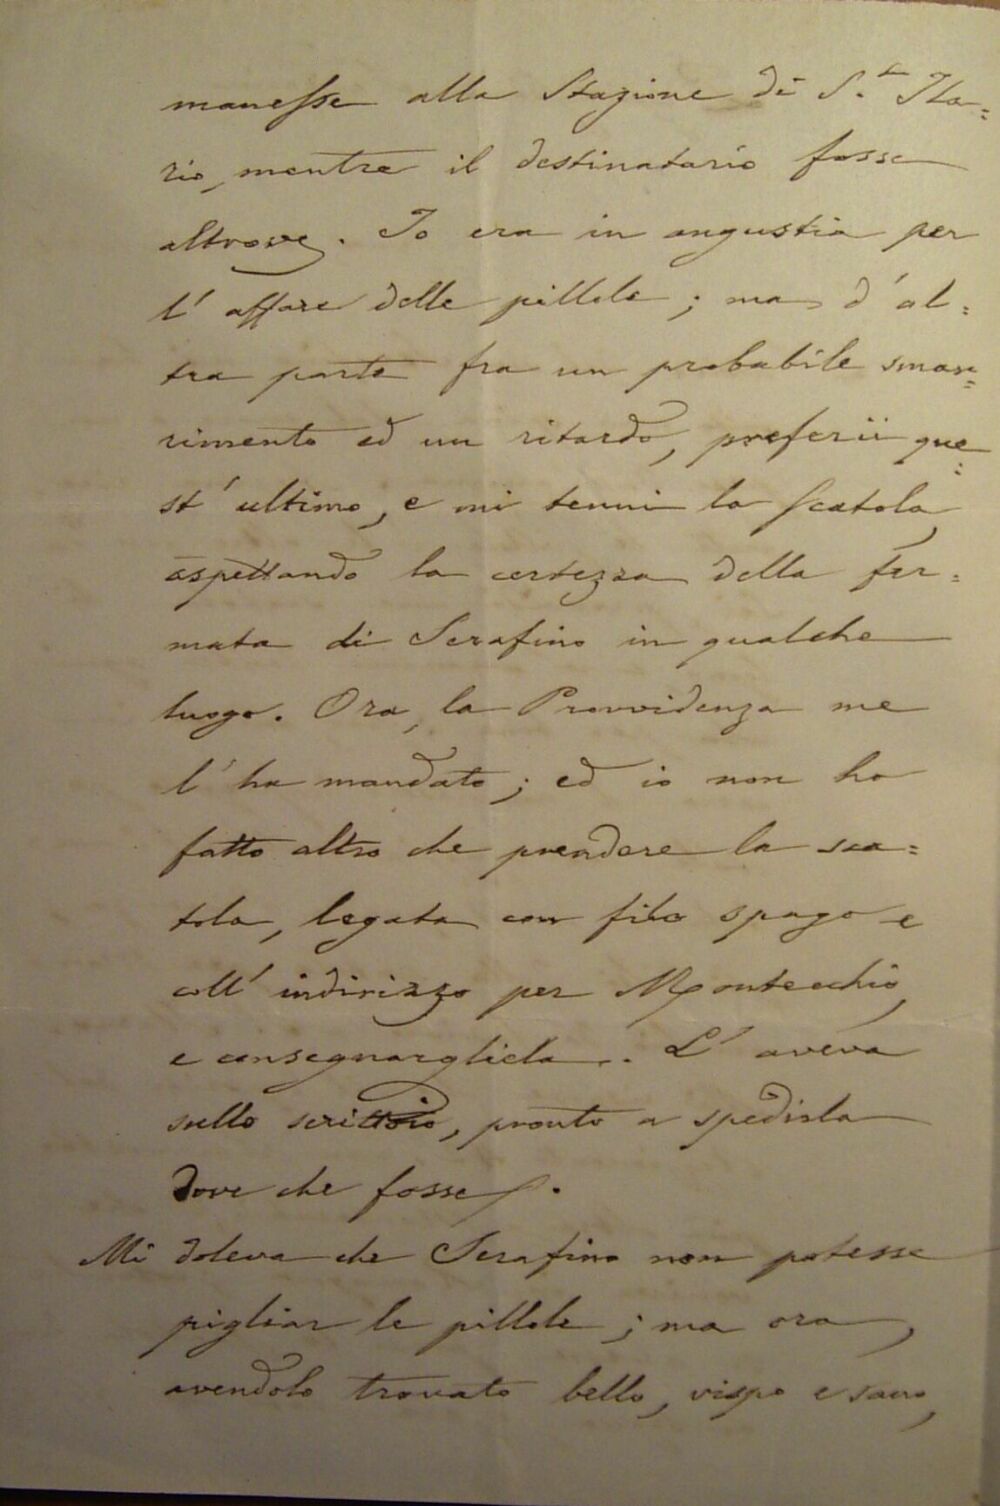 manesse alla Stazione di S.t Ila=
rio, mentre il destinatario fosse
altrove. Io era in angustia per
l' affare delle pillole; ma d' al=
tra parte fra un probabile smar=
rimento ed un ritardo, preferii que=
st' ultimo, e mi tenni la scatola,
aspettando la certezza della fer=
mata di Serafino in qualche
luogo. Ora, la Provvidenza me
l' ha mandato; ed io non ho
fatto altro che prendere la sca=
tola, legata con filo spago e
coll' indirizzo per Montecchio,
e consegnargliela. L' aveva
sullo scrittoio, pronto a spedirla
dove che fosse.
Mi doleva che Serafino non potesse
pigliar le pillole; ma ora,
avendolo trovato bello, vispo e sano,